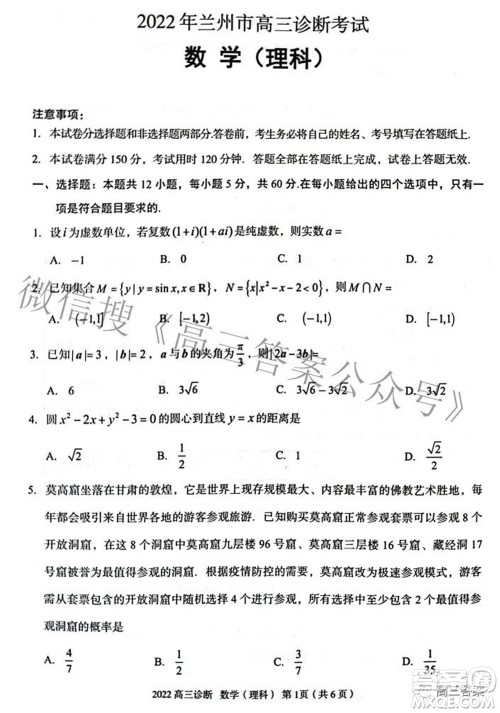 2022年兰州市高三诊断考试
数 学（理科）
注意事项：
1. 本试卷分选择题和非选择题两部分.答卷前，考生务必将自己的姓名、考号填写在答题纸上.
2. 本试卷满分 150 分，考试用时 120 分钟. 答题全部在答题纸上完成，试卷上答题无效.
一、选择题：本题共 12 小题，每小题 5 分，共 60 分.在每小题给出的四个选项中，只有一
项是符合题目要求的.
1. 设 i 为虚数单位，若复数(1+i)(1+ai)是纯虚数，则实数 a =
A. −1 B. 0 C. 1 D. 2
2. 已知集合 M={y|y=sin x,x∈R}，N={x|x²−x−2<0}，则 M∩N=
A. (−1,1] B. [−1,2) C. [−1,1] D. (−1,1)
3. 已知|a|=3，|b|=2，a 与 b 的夹角为π/3，则|2a−3b|=
A. 6 B. 3√6 C. 3√2 D. 3√3
4. 圆 x²−2x+y²−3=0 的圆心到直线 y=x 的距离是
A. √2 B. 1/2 C. 1 D. √2/2
5. 莫高窟坐落在甘肃的敦煌，它是世界上现存规模最大、内容最丰富的佛教艺术胜地，每
年都会吸引来自世界各地的游客参观旅游. 已知购买莫高窟正常参观套票可以参观 8 个
开放洞窟，在这 8 个洞窟中莫高窟九层楼 96 号窟、莫高窟三层楼 16 号窟、藏经洞 17
号窟被誉为最值得参观的洞窟. 根据疫情防控的需要，莫高窟改为极速参观模式，游客
需从套票包含的开放洞窟中随机选择 4 个进行参观，所有选择中至少包含 2 个最值得参
观洞窟的概率是
A. 4/7 B. 1/2 C. 3/7 D. 1/35
2022 高三诊断 数学（理科） 第 1 页（共 6 页）
微信搜《高三答案公众号》
高三答案